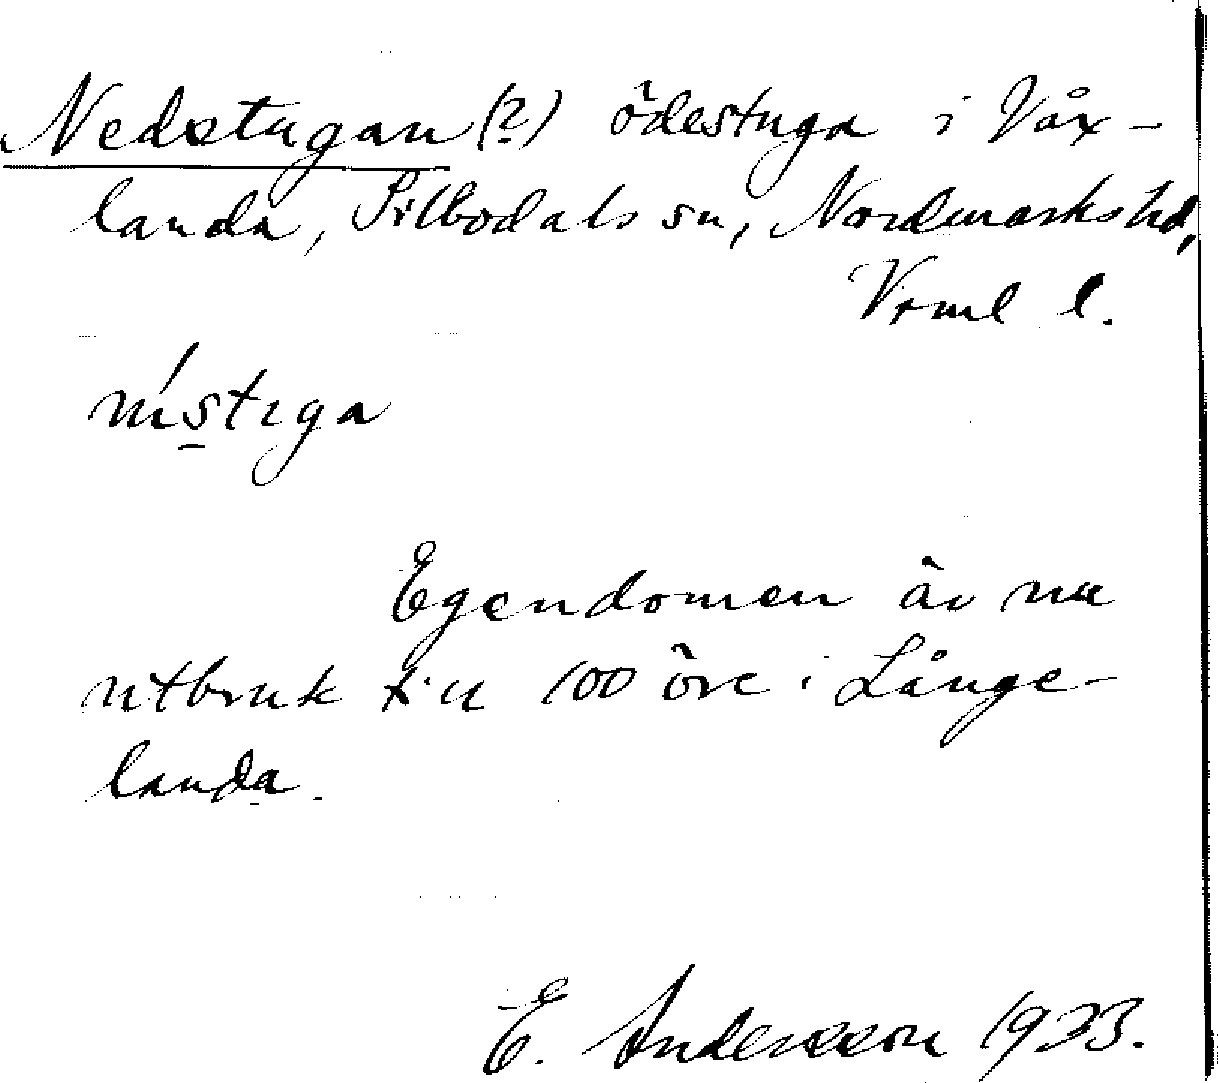 Nedstugan (?) ödestuga i Våx-
landa, Silbodals sn, Nordmarks hd,
Vrml l.
nístɩga
Egendomen är nu
utbruk till 100 öre i Långe-
landa.
E. Andersson 1933.